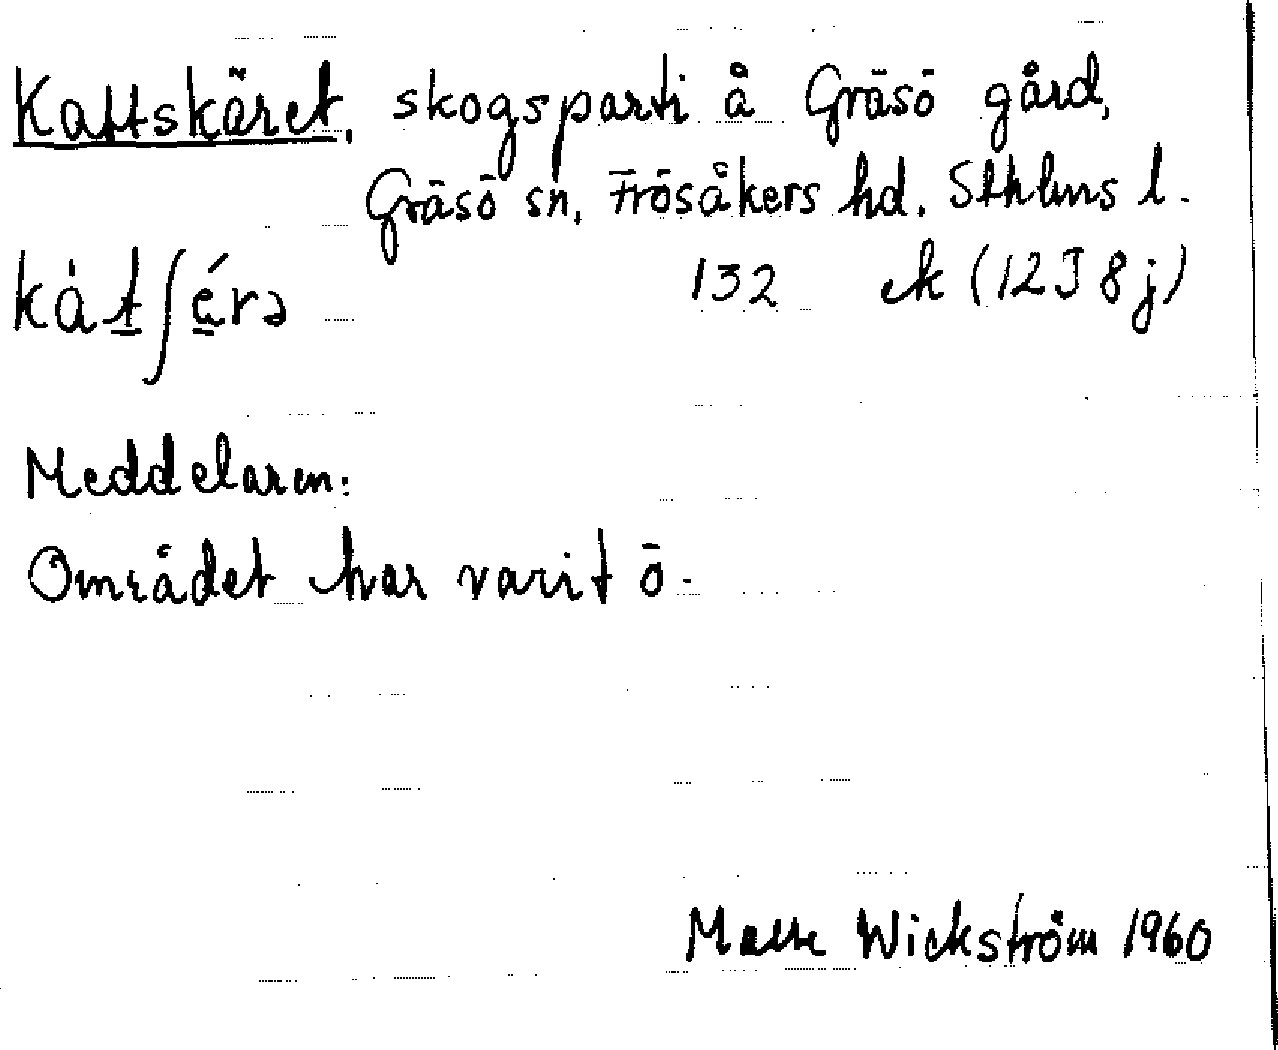 Kattskäret, skogsparti å Gräsö gård,
Gräsö sn, Frösåkers hd. Sthlms l.
kàtʃérə 132 ek (12J 8j)
Meddelaren:
Området har varit ö.
Wickström 1960